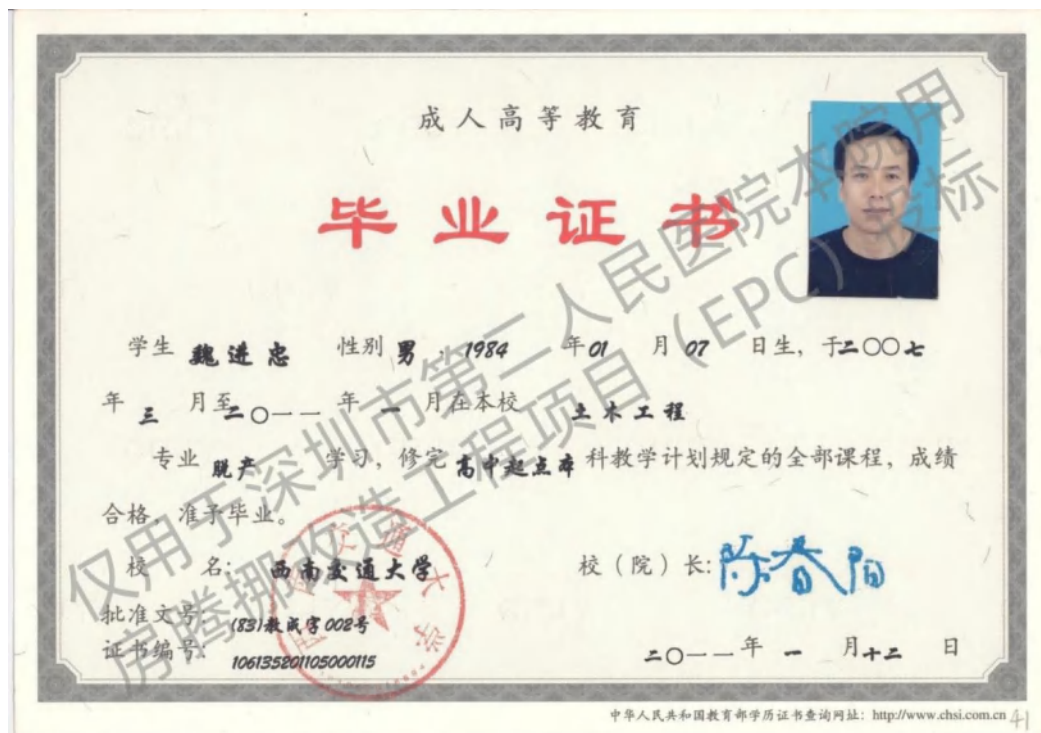 成人高等教育
毕业证书
学生 魏进忠 性别 男，1984 年 01 月 07 日生，于二〇〇七
年 三 月至二〇一一 年 一 月在本校 土木工程
专业 脱产 学习，修完 高中起点本 科教学计划规定的全部课程，成绩
合格，准予毕业。
校 名： 西南交通大学 校（院）长：陈春阳
批准文号： (83)教成字002号
证书编号： 106135201105000115
二〇一一 年 一 月 十二 日
西南交通大学
仅用于深圳市第二人民医院本院用
房腾挪改造工程项目（EPC）投标
中华人民共和国教育部学历证书查询网址：http://www.chsi.com.cn
41